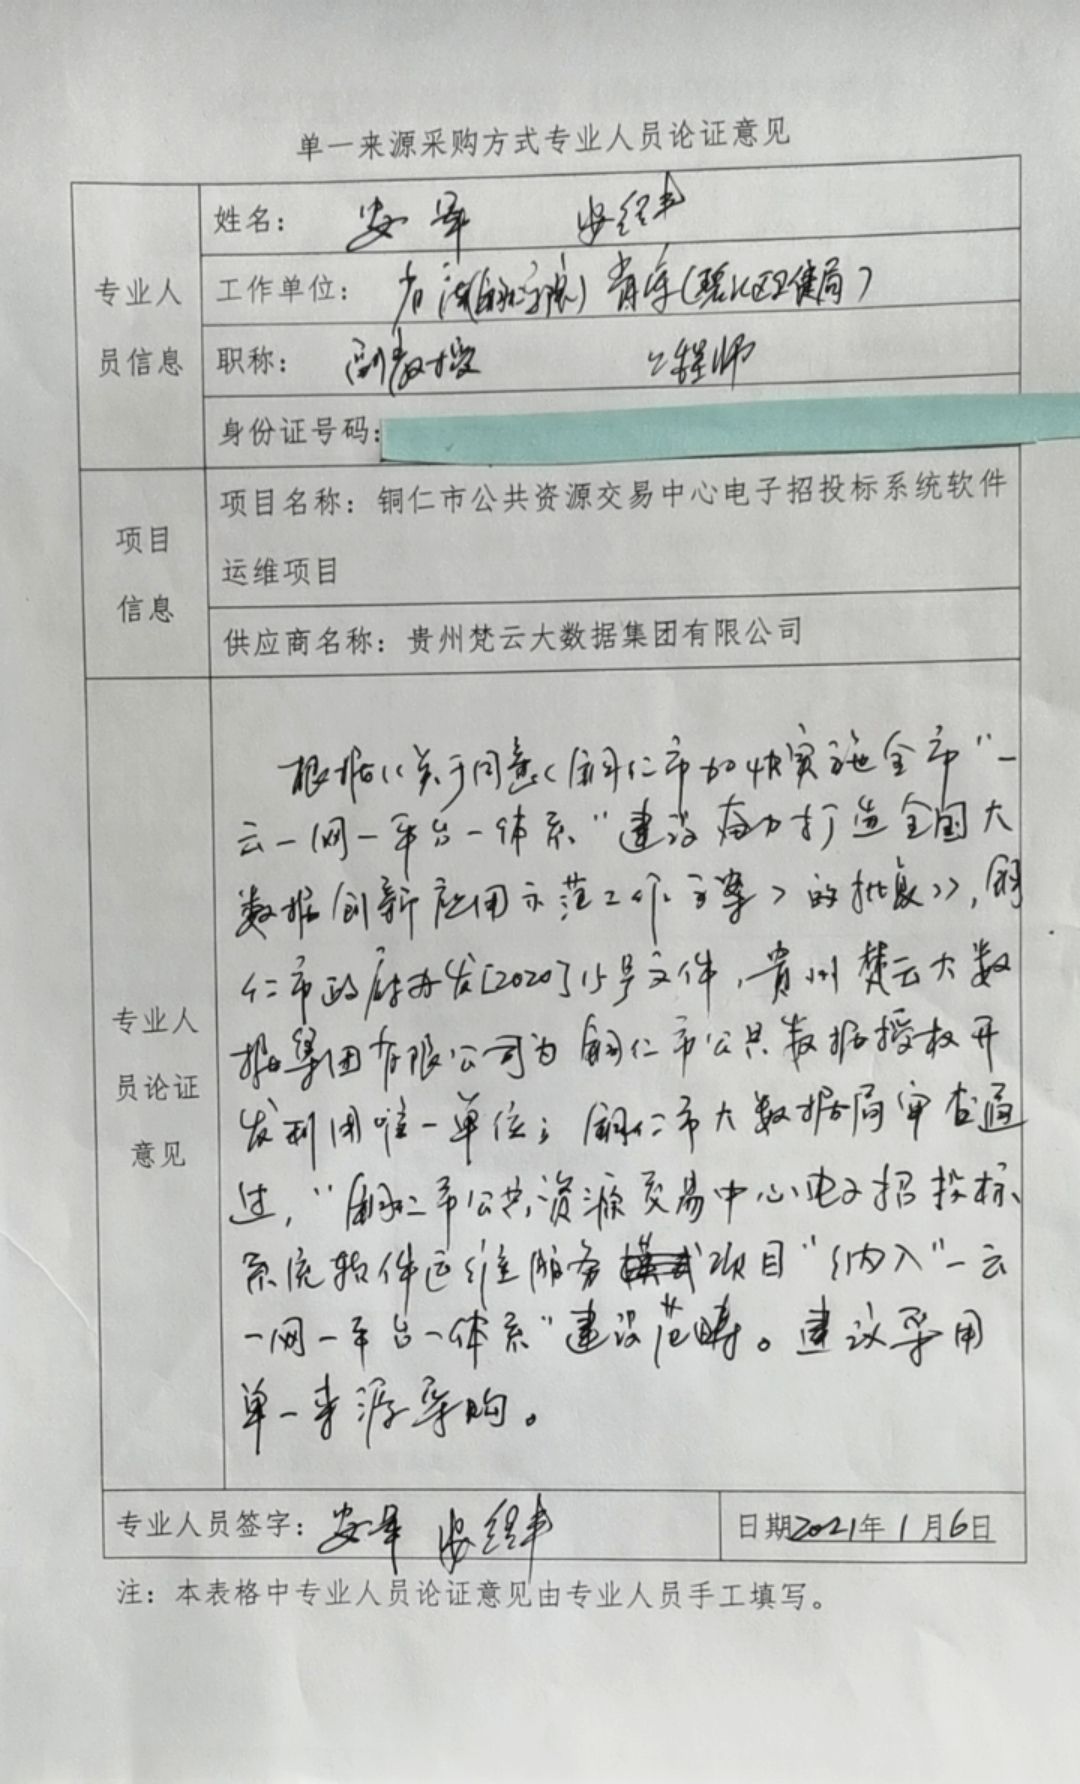 单一来源采购方式专业人员论证意见
专业人
员信息
姓名：
工作单位：
职称： 副教授 工程师
身份证号码：
项目
信息
项目名称：铜仁市公共资源交易中心电子招投标系统软件
运维项目
供应商名称：贵州梵云大数据集团有限公司
专业人
员论证
意见
根据《关于同意<铜仁市加快实施全市"一
云一网一平台一体系"建设奋力打造全国大
数据创新应用示范工作方案>的批复》，铜
仁市政府办发[2020]15号文件，贵州梵云大数
据集团有限公司为铜仁市公共数据授权开
发利用唯一单位；铜仁市大数据局审查通
过，"铜仁市公共资源交易中心电子招投标
系统软件运维服务项目"纳入"一云
一网一平台一体系"建设范畴。建议采用
单一来源采购。
专业人员签字：
日期2021年1月6日
注：本表格中专业人员论证意见由专业人员手工填写。